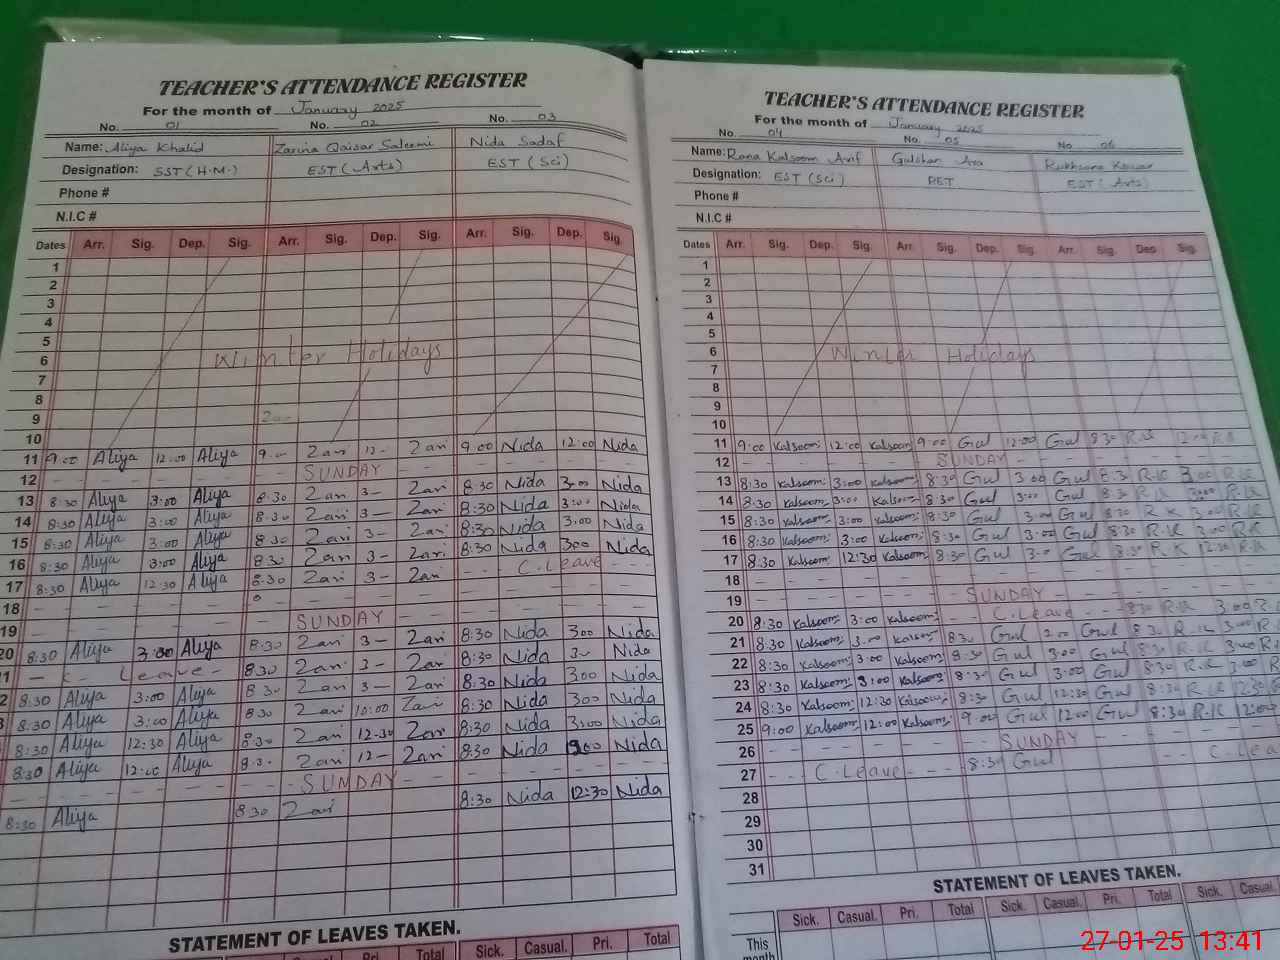 TEACHER'S ATTENDANCE REGISTER
For the month of January 2025
No. 01 No. 02 No. 03
Name: Aliya Khalid Zarina Qaisar Saleemi Nida Sadaf
Designation: SST (H.M.) EST (Arts) EST (Sci)
Phone #
N.I.C #
Dates Arr. Sig. Dep. Sig. Arr. Sig. Dep. Sig. Arr. Sig. Dep. Sig.
1
2
3
4
5
6 Winter Holidays
7
8
9
10
11 9:00 Aliya 12:00 Aliya 9:00 Zari 12- Zari 9:00 Nida 12:00 Nida
12 SUNDAY
13 8:30 Aliya 3:00 Aliya 8:30 Zari 3- Zari 8:30 Nida 3:00 Nida
14 8:30 Aliya 3:00 Aliya 8:30 Zari 3- Zari 8:30 Nida 3:00 Nida
15 8:30 Aliya 3:00 Aliya 8:30 Zari 3- Zari 8:30 Nida 3:00 Nida
16 8:30 Aliya 3:00 Aliya 8:30 Zari 3- Zari 8:30 Nida 3:00 Nida
17 8:30 Aliya 12:30 Aliya 8:30 Zari 3- Zari C.Leave
18
19 SUNDAY
20 8:30 Aliya 3:00 Aliya 8:30 Zari 3- Zari 8:30 Nida 3:00 Nida
1 Leave 8:30 Zari 3- Zari 8:30 Nida 3- Nida
2 8:30 Aliya 3:00 Aliya 8:30 Zari 3- Zari 8:30 Nida 3:00 Nida
3 8:30 Aliya 3:00 Aliya 8:30 Zari 10:00 Zari 8:30 Nida 3:00 Nida
8:30 Aliya 12:30 Aliya 8:30 Zari 12-30 Zari 8:30 Nida 3:00 Nida
8:30 Aliya 12:00 Aliya 8:30 Zari 12- Zari 8:30 Nida Nida
SUNDAY
8:30 Aliya 8:30 Zari 8:30 Nida 12:30 Nida
STATEMENT OF LEAVES TAKEN.
Pri. Total Sick. Casual. Pri. Total
TEACHER'S ATTENDANCE REGISTER
For the month of January 2025
No. 04 No. 05 No. 06
Name: Rana Kalsoom Arif Gulshan Ara Rukhsana
Designation: EST (Sci) PET EST (Arts)
Phone #
N.I.C #
Dates Arr. Sig. Dep. Sig. Arr. Sig. Dep. Sig. Arr. Sig. Dep. Sig.
1
2
3
4
5
6 Winter Holidays
7
8
9
10
11 9:00 Kalsoom 12:00 Kalsoom 9:00 Gul 12:00 Gul 8:30 R.K 12:00 R.K
12 SUNDAY
13 8:30 Kalsoom 3:00 Kalsoom 8:30 Gul 3:00 Gul 8:30 R.K 3:00 R.K
14 8:30 Kalsoom 3:00 Kalsoom 8:30 Gul 3:00 Gul 8:30 R.K 3:00 R.K
15 8:30 Kalsoom 3:00 Kalsoom 8:30 Gul 3:00 Gul 8:30 R.K 3:00 R.K
16 8:30 Kalsoom 3:00 Kalsoom 8:30 Gul 3:00 Gul 8:30 R.K 3:00 R.K
17 8:30 Kalsoom 12:30 Kalsoom 8:30 Gul 3:00 Gul 8:30 R.K 12:30 R.K
18
19 SUNDAY
20 8:30 Kalsoom 3:00 Kalsoom C.Leave 8:30 R.K 3:00 R.K
21 8:30 Kalsoom 3:00 Kalsoom 8:30 Gul 3:00 Gul 8:30 R.K 3:00 R.K
22 8:30 Kalsoom 3:00 Kalsoom 8:30 Gul 3:00 Gul 8:30 R.K 3:00 R.K
23 8:30 Kalsoom 3:00 Kalsoom 8:30 Gul 3:00 Gul 8:30 R.K 3:00 R.K
24 8:30 Kalsoom 12:30 Kalsoom 8:30 Gul 12:30 Gul 8:30 R.K 12:30
25 9:00 Kalsoom 12:00 Kalsoom 9:00 Gul 12:00 Gul 8:30 R.K 12:00
26 SUNDAY
27 C.Leave 8:30 Gul C.Lea
28
29
30
31
STATEMENT OF LEAVES TAKEN.
Sick. Casual. Pri. Total Sick. Casual. Pri. Total Sick. Casual.
This
month
27-01-25 13:41